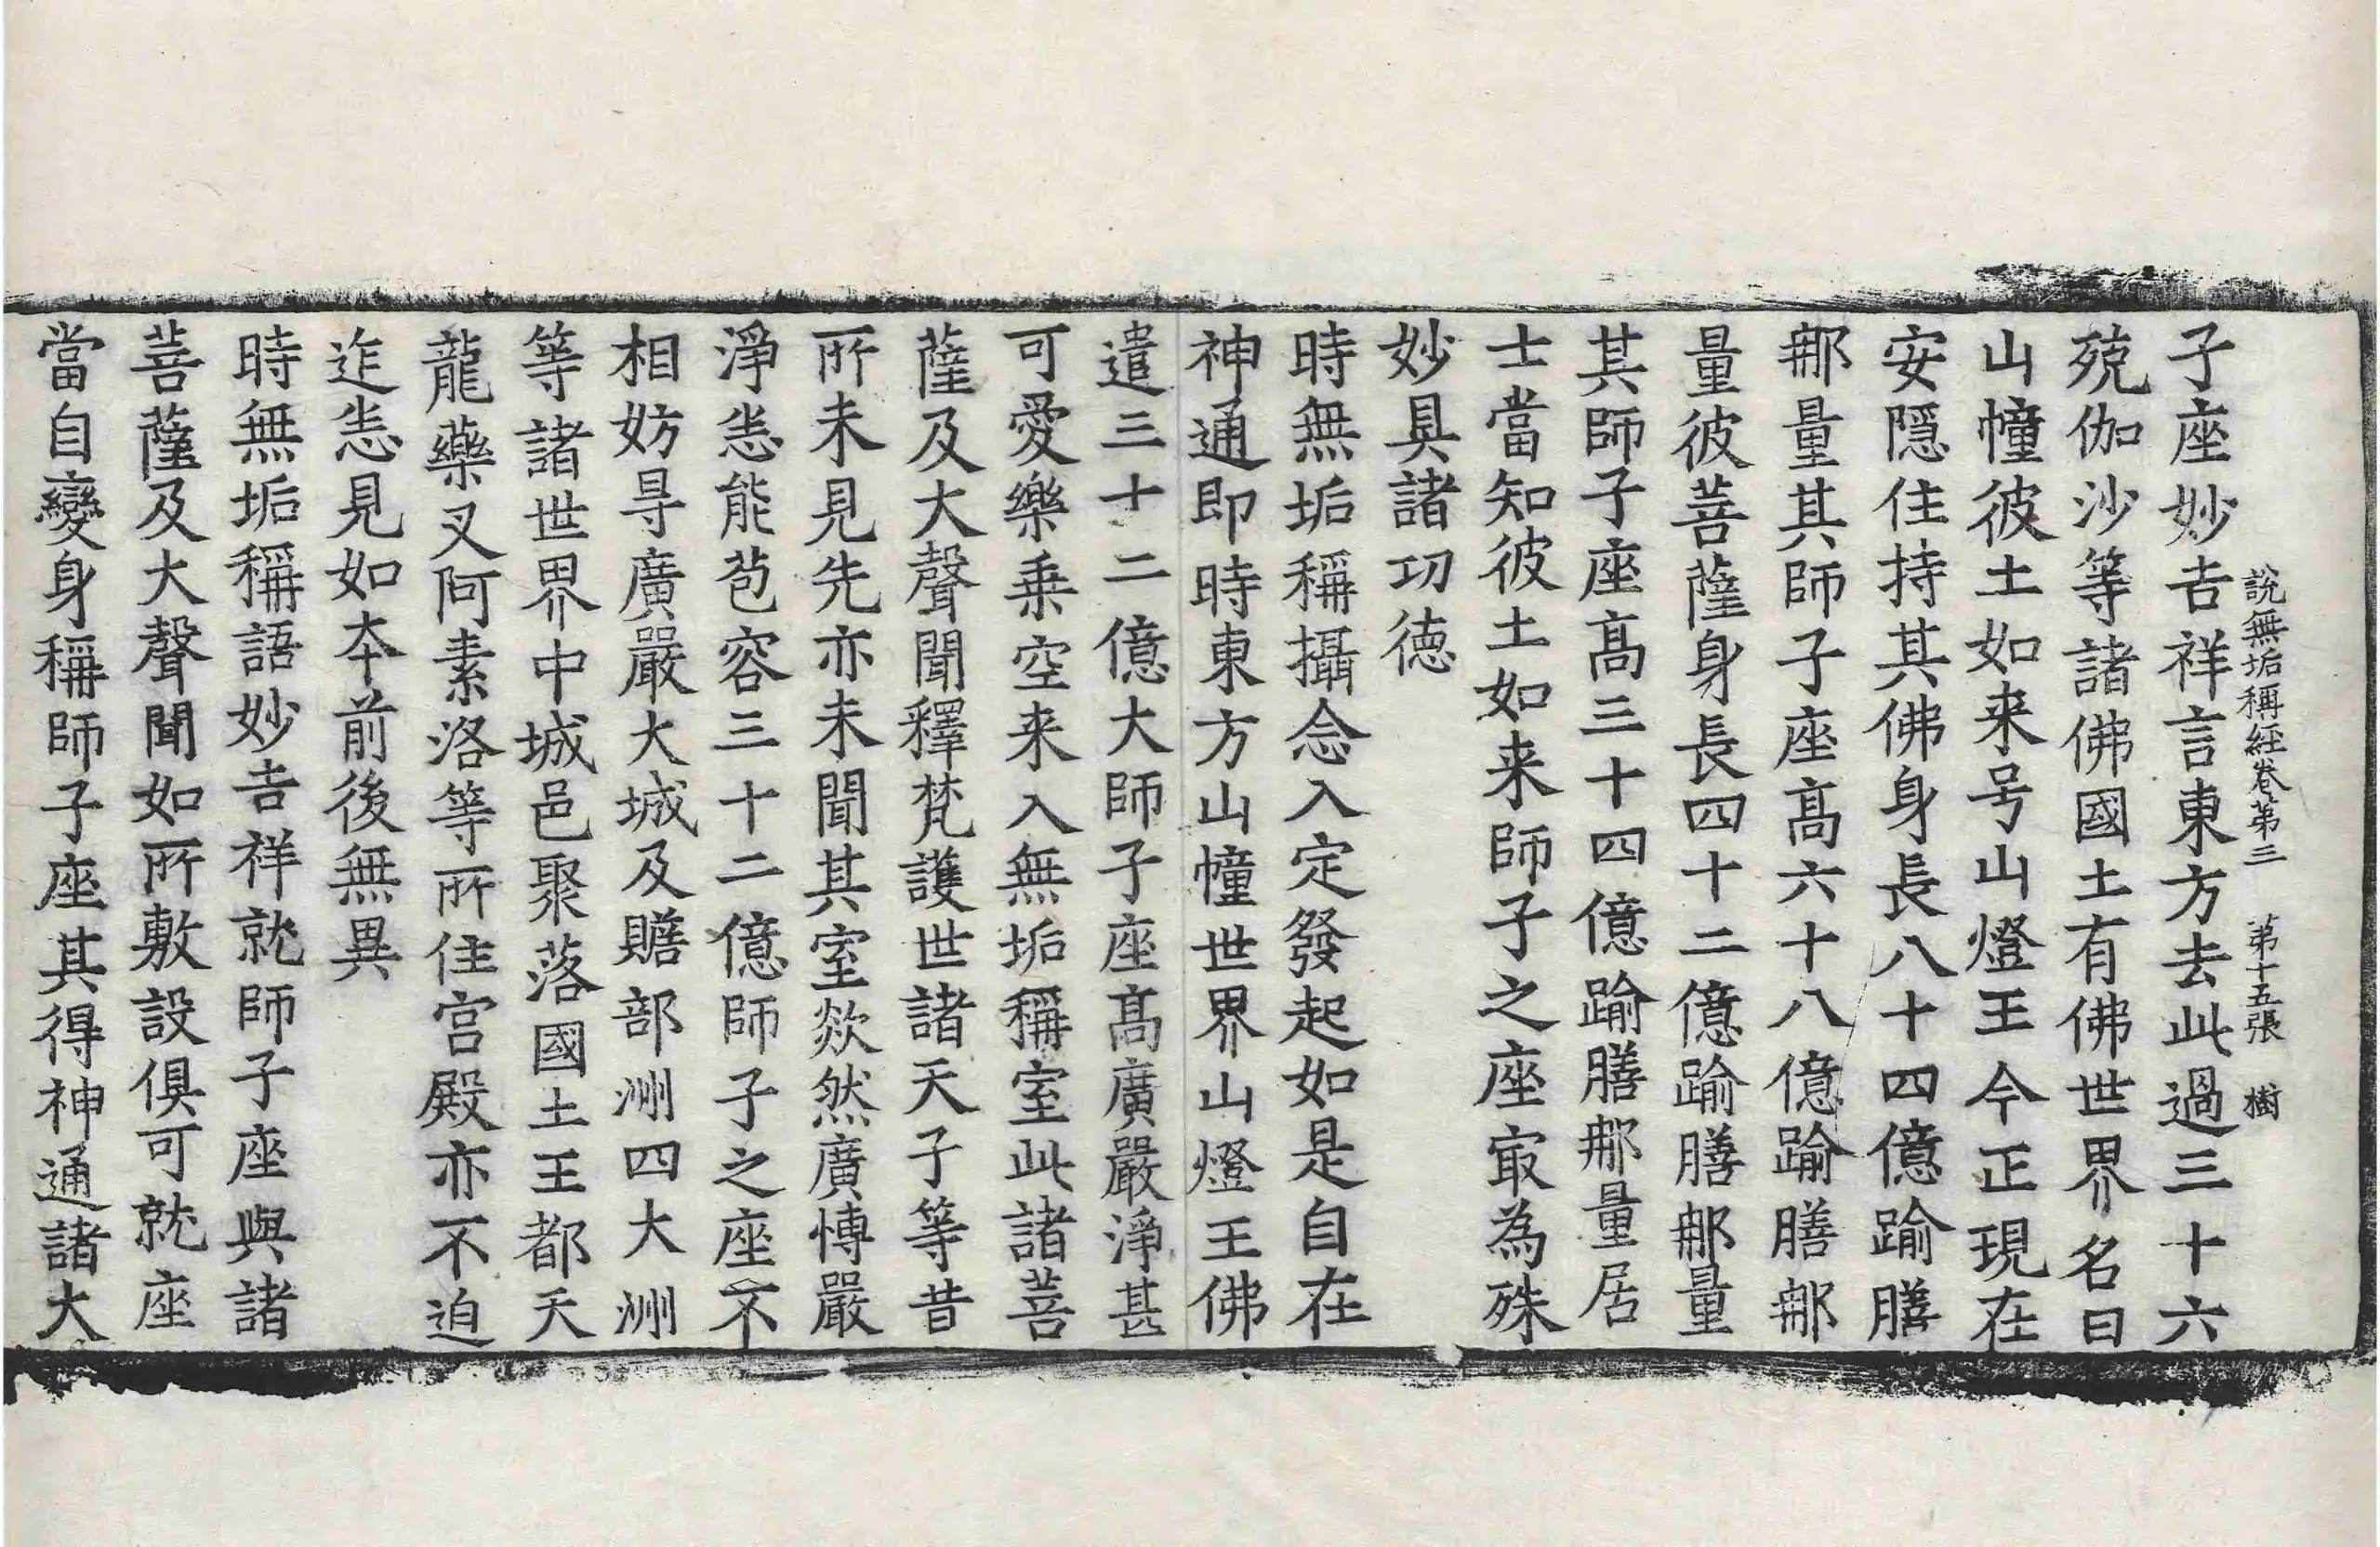 子座妙吉祥言東方去此過三十六
説無垢稱經卷第三 第十五張 樹
殑伽沙等諸佛國土有佛世界名曰
山幢彼土如来号山燈王今正現在
安隱住持其佛身長八十四億踰膳
𨚗量其師子座髙六十八億踰膳𨚗
量彼菩薩身長四十二億踰膳𨚗量
其師子座髙三十四億踰膳𨚗量居
士當知彼土如来師子之座㝡為殊
妙具諸功徳
時無垢稱攝念入定發起如是自在
神通即時東方山幢世界山燈王佛
遣三十二億大師子座髙廣嚴淨甚
可愛樂乗空来入無垢稱室此諸菩
薩及大聲聞釋梵護世諸天子等昔
所未見先亦未聞其室欻然廣愽嚴
淨悉能苞容三十二億師子之座不
相妨㝵廣嚴大城及贍部洲四大洲
等諸世界中城邑聚落國土王都天
龍藥叉阿素洛等所住宫殿亦不迫
迮悉見如本前後無異
時無垢稱語妙吉祥就師子座與諸
菩薩及大聲聞如所敷設俱可就座
當自變身稱師子座其得神通諸大